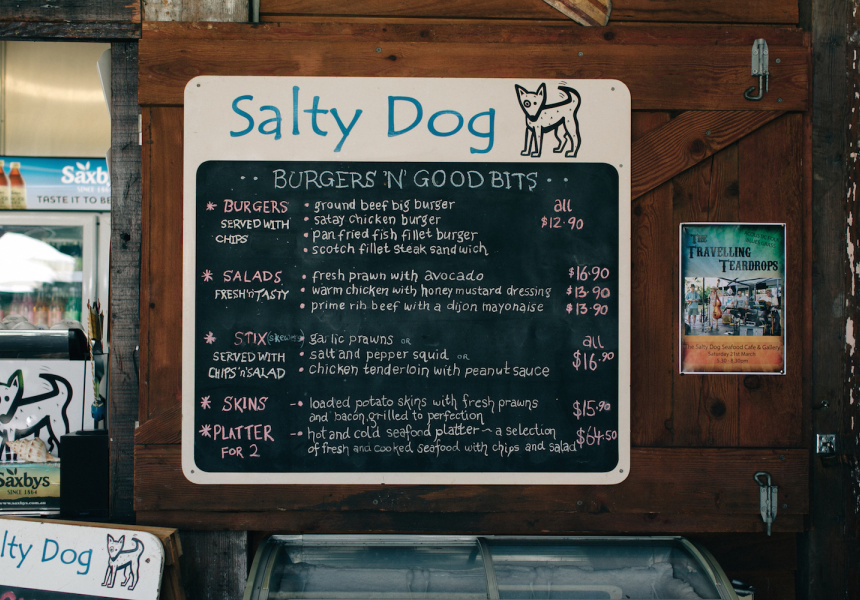 Salty Dog
·· BURGERS 'N' GOOD BITS ··
* BURGERS
SERVED WITH
CHIPS
• ground beef big burger
• satay chicken burger
• pan fried fish fillet burger
• scotch fillet steak sandwich
all
$12.90
* SALADS
FRESH'n'TASTY
• fresh prawn with avocado $16.90
• warm chicken with honey mustard dressing $13.90
• prime rib beef with a dijon mayonaise $13.90
* STIX (skewers)
SERVED WITH
CHIPS'n'SALAD
• garlic prawns or
• salt and pepper squid or
• chicken tenderloin with peanut sauce
all
$16.90
* SKINS -• loaded potato skins with fresh prawns
and bacon, grilled to perfection
$15.90
* PLATTER
FOR 2
-• hot and cold seafood platter ~ a selection
of fresh and cooked seafood with chips and salad
$64.50
THE
TRAVELLING
TEARDROPS
The Salty Dog Seafood Cafe & Gallery
Saturday 21st March
Saxb
SINCE 18
TASTE IT TO BE
Saxbys
SINCE 1864
www.saxbys.com.au
lty Dog